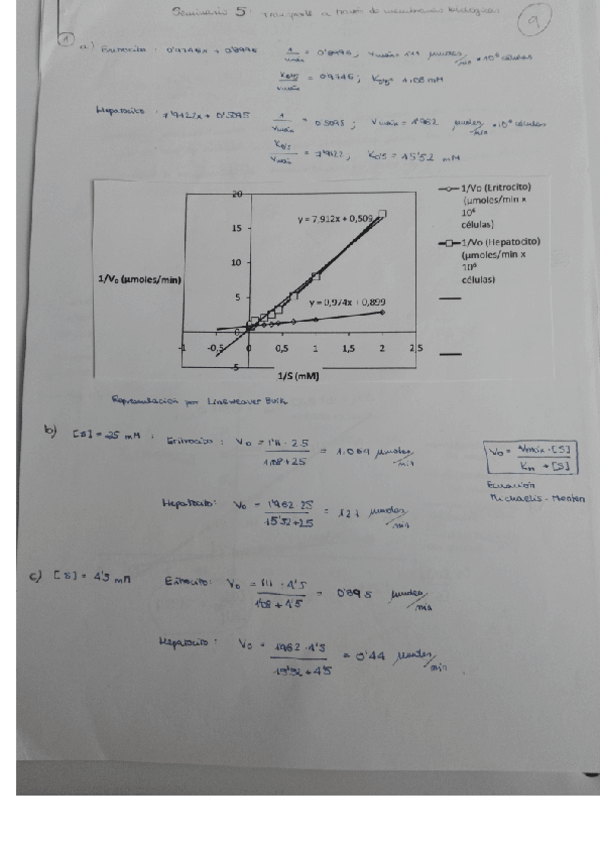 Seminario 5: transporte a través de membranas biológicas
9
1 a) Eritrocito: 0'9746x + 0'8996 1/Vmáx = 0'8996; Vmáx= 1'11 μmoles/min × 10⁶ células
K0/5/Vmáx = 0'9746; K0/5= 1,08 mM
Hepatocito: 7'9122x + 0'5095 1/Vmáx = 0'5095; Vmáx = 1'962 μmoles/min × 10⁶ células
K0/5/Vmáx = 7'9122; K0/5 = 15'52 mM
20
15
10
5
0
-5
-1 -0,5 0 0,5 1 1,5 2 2,5
y = 7,912x + 0,509
y = 0,974x + 0,899
1/V₀ (μmoles/min)
1/S (mM)
1/Vo (Eritrocito)
(μmoles/min x
10⁶
células)
1/Vo (Hepatocito)
(μmoles/min x
10⁶
células)
Representación por Lineweaver Burk
b) [S] = 25 mM : Eritrocito: V₀ = 1'11 · 25 / 1'08 + 25 = 1.064 μmoles/min
V₀ = Vmáx · [S] / Km + [S]
Ecuación
Michaelis - Menten
Hepatocito: V₀ = 1'962 · 25 / 15'52 + 25 = 1'21 μmoles/min
c) [S] = 4'5 mM Eritrocito: V₀ = 1'11 · 4'5 / 1'08 + 4'5 = 0'895 μmoles/min
Hepatocito: V₀ = 1'962 · 4'5 / 15'52 + 4'5 = 0'44 μmoles/min